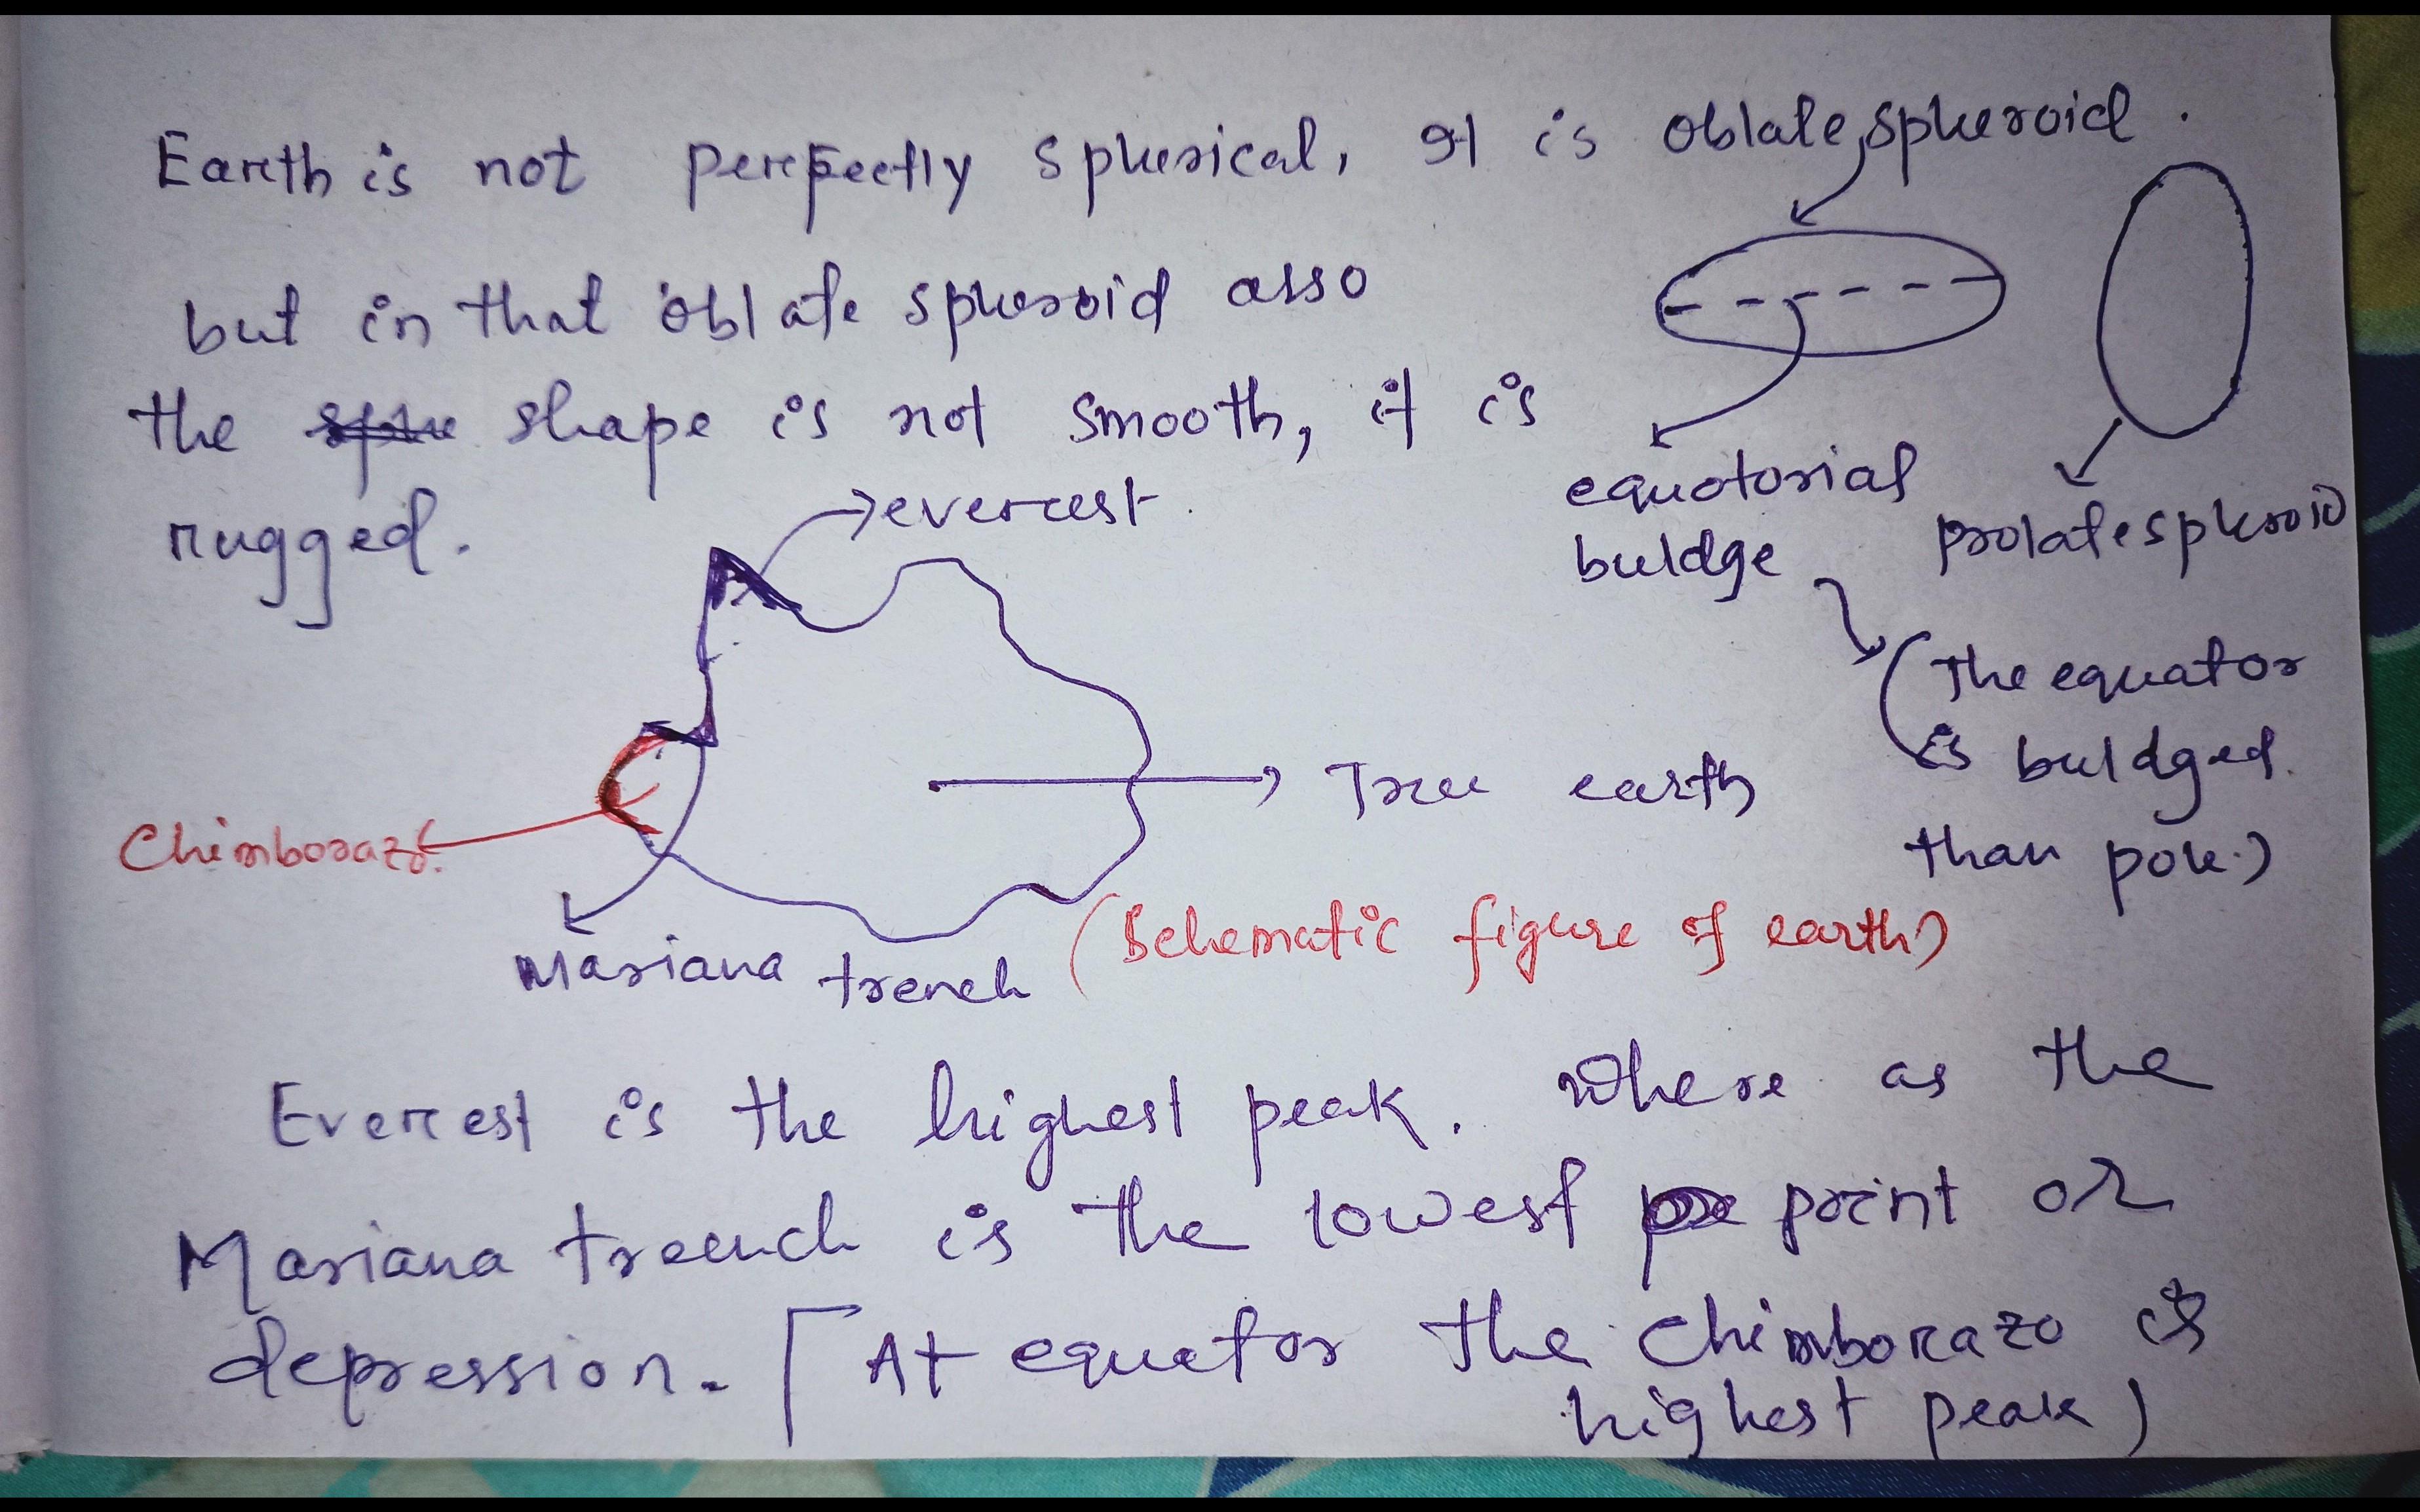 Earth is not perfectly spherical, It is oblate spheroid.
but in that oblate spheroid also
the shape is not smooth, it is
rugged.
everest
equotorial
buldge
prolate spheroid
(The equator
is buldged
than pole.)
True earth
Chimborazo.
Mariana trench
(Schematic figure of earth)
Everest is the highest peak. Where as the
Mariana trench is the lowest point or
depression. [At equator the Chimborazo is
highest peak)